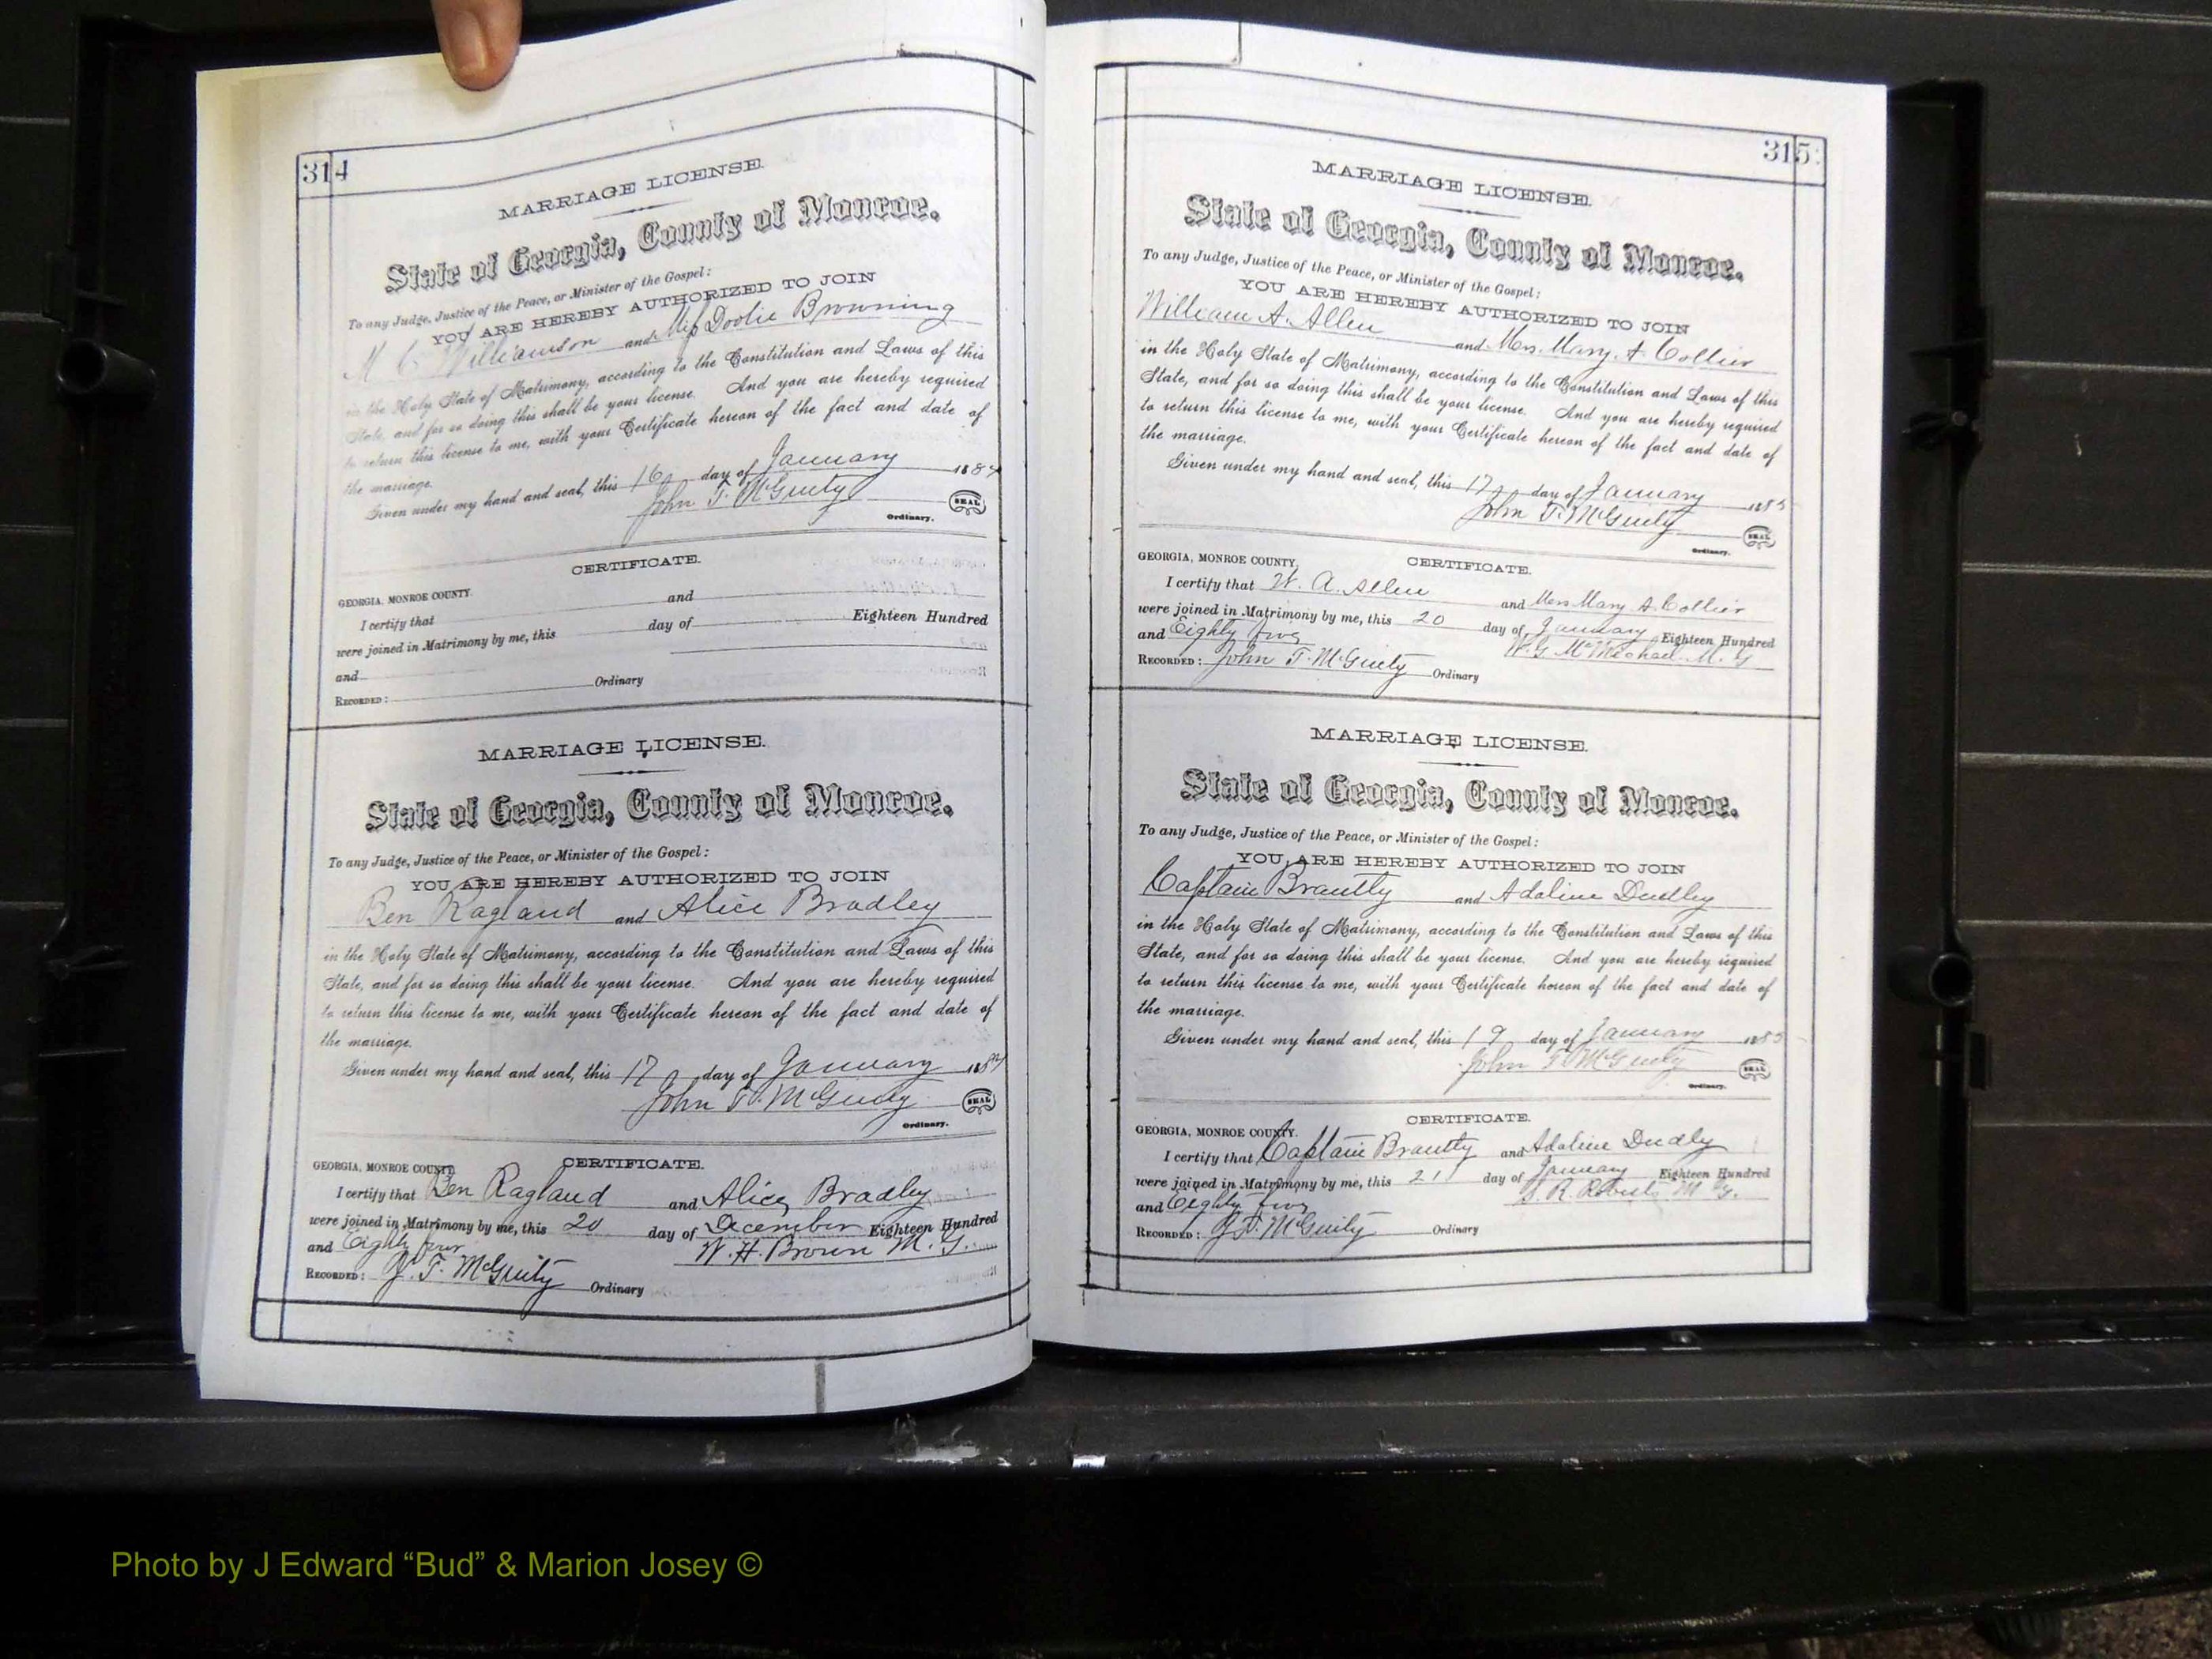 314
MARRIAGE LICENSE.
State of Georgia, County of Monroe.
To any Judge, Justice of the Peace, or Minister of the Gospel:
YOU ARE HEREBY AUTHORIZED TO JOIN
M C Williamson and Miss Doolie Browning
in the Holy State of Matrimony, according to the Constitution and Laws of this
State, and for so doing this shall be your license. And you are hereby required
to return this license to me, with your Certificate hereon of the fact and date of
the marriage.
Given under my hand and seal, this 16 day of January 188
John T. McGinty SEAL
Ordinary.
CERTIFICATE.
GEORGIA, MONROE COUNTY.
I certify that and
were joined in Matrimony by me, this day of Eighteen Hundred
and
RECORDED: Ordinary
MARRIAGE LICENSE.
State of Georgia, County of Monroe.
To any Judge, Justice of the Peace, or Minister of the Gospel:
YOU ARE HEREBY AUTHORIZED TO JOIN
Ben Ragland and Alice Bradley
in the Holy State of Matrimony, according to the Constitution and Laws of this
State, and for so doing this shall be your license. And you are hereby required
to return this license to me, with your Certificate hereon of the fact and date of
the marriage.
Given under my hand and seal, this 17 day of January 188
John T. McGinty SEAL
Ordinary.
CERTIFICATE.
GEORGIA, MONROE COUNTY.
I certify that Ben Ragland and Alice Bradley
were joined in Matrimony by me, this 20 day of December Eighteen Hundred
and Eighty four W. H. Brown M. G.
RECORDED: J. T. McGinty Ordinary
315
MARRIAGE LICENSE.
State of Georgia, County of Monroe.
To any Judge, Justice of the Peace, or Minister of the Gospel:
YOU ARE HEREBY AUTHORIZED TO JOIN
William A. Allen and Mrs. Mary A Collier
in the Holy State of Matrimony, according to the Constitution and Laws of this
State, and for so doing this shall be your license. And you are hereby required
to return this license to me, with your Certificate hereon of the fact and date of
the marriage.
Given under my hand and seal, this 17 day of January 1885
John T. McGinty SEAL
Ordinary.
CERTIFICATE.
GEORGIA, MONROE COUNTY.
I certify that W. A. Allen and Mrs Mary A Collier
were joined in Matrimony by me, this 20 day of January Eighteen Hundred
and Eighty five W. G McMichael M. G
RECORDED: John T. McGinty Ordinary
MARRIAGE LICENSE.
State of Georgia, County of Monroe.
To any Judge, Justice of the Peace, or Minister of the Gospel:
YOU ARE HEREBY AUTHORIZED TO JOIN
Captain Brantly and Adaline Dudley
in the Holy State of Matrimony, according to the Constitution and Laws of this
State, and for so doing this shall be your license. And you are hereby required
to return this license to me, with your Certificate hereon of the fact and date of
the marriage.
Given under my hand and seal, this 19 day of January 1885
John T. McGinty SEAL
Ordinary.
CERTIFICATE.
GEORGIA, MONROE COUNTY.
I certify that Captain Brantly and Adaline Dudly
were joined in Matrimony by me, this 21 day of January Eighteen Hundred
and Eighty five R. Roberts M G.
RECORDED: J T. McGinty Ordinary
Photo by J Edward “Bud” & Marion Josey ©